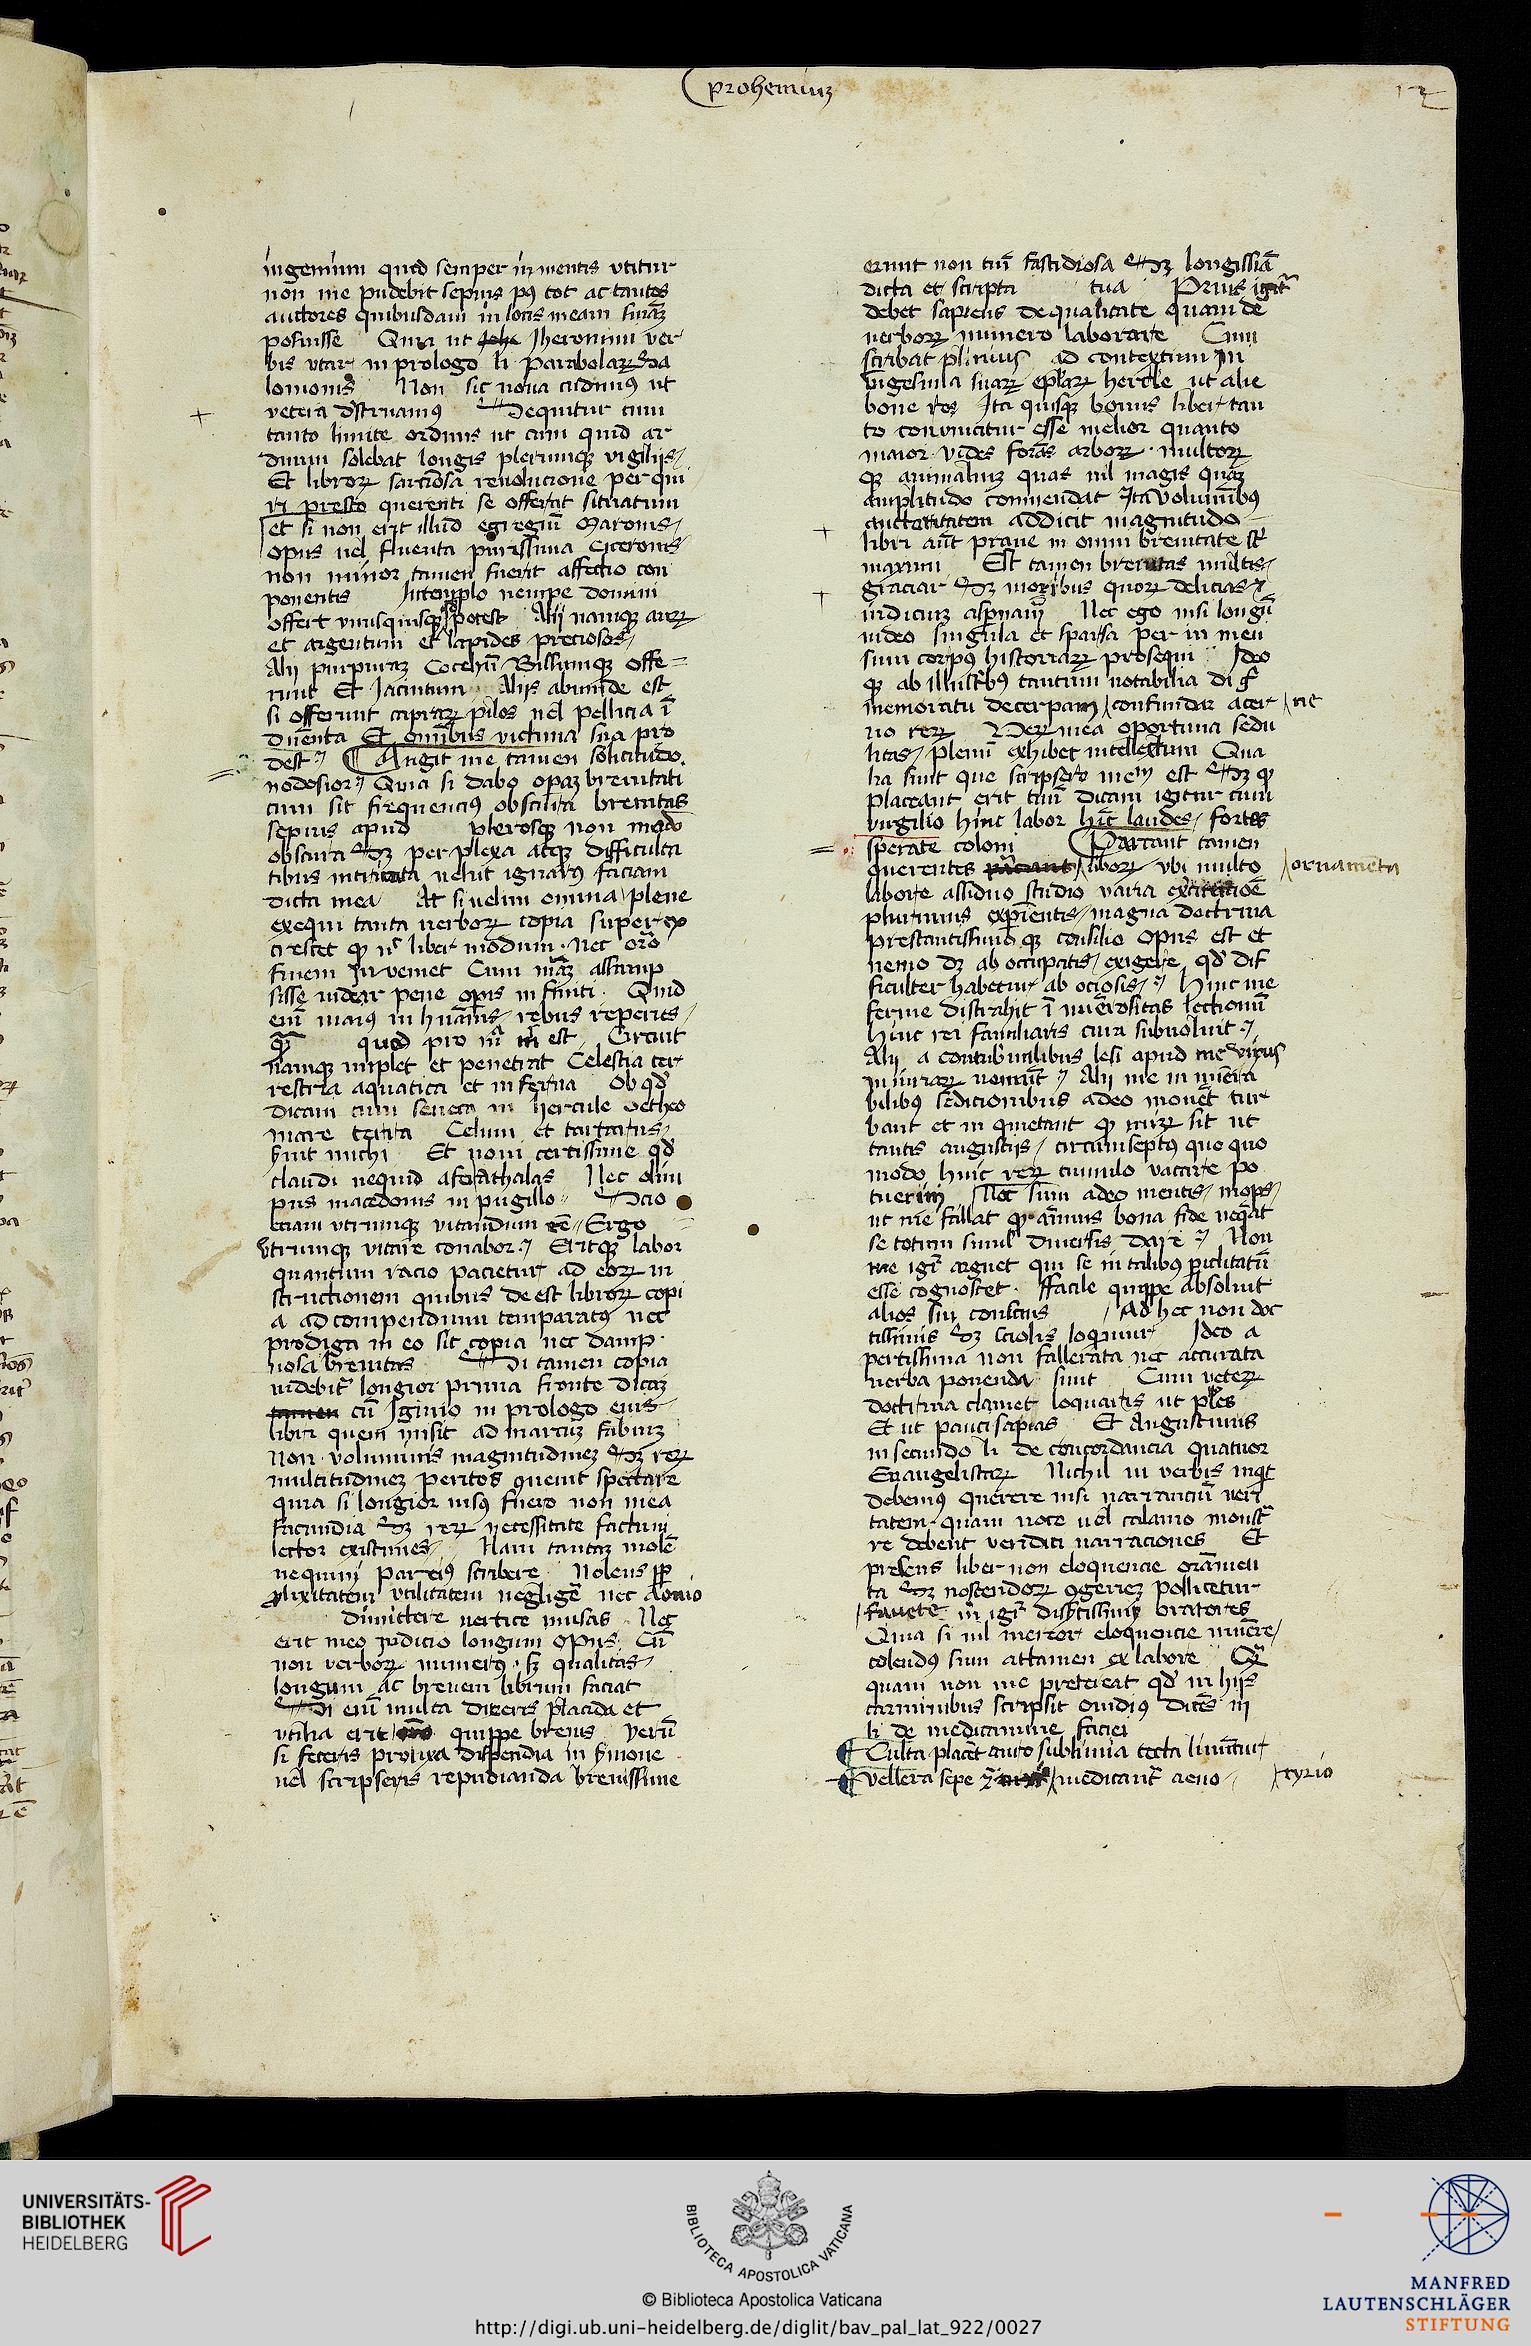 prohemiuʒ
12
ingenium quod semper in mentis vtitur
non me pudebit sepius pꝰ tot ac tantos
auctores quibusdam in locis meam
posuisse Quia ut Jheronimi ver
bis vtar in prologo li parabolarꝝ sa
lomonis Non sic noua cudimꝰ ut
vetera dstruamꝰ Sequitur cum
tanto limite ordinis ut cum quid ar
duum solebat longis plerumqꝫ vigilijs
Et librorꝝ sarcinosa reuolucione per qui
ri presto querenti se offerat situatum
et si non erit illud egregiū Maronis
opus uel fluenta purissima Ciceronis
non minor tamen fuerit affectio con
ponentis In templo nempe domini
offert vnusquisqꝫ qd potest Alij namqꝫ aurꝫ
et argentum et lapides preciosos
Alij purpuraꝫ Coccinū Bissumqꝫ offe=
runt Et Jacintum Alijs abunde est
si offerunt caprarꝝ pilos uel pellicia ī
Et omnibus victima sua pro
dest Angit me tamen solicitudo
nodosior Quia si dabo operaꝫ breuitati
cum sit frequenciꝰ obscurita breuitas
sepius apud plerosqꝫ non modo
obscura sꝫ perplexa atqꝫ difficulta
tibus intricata uelut ignarꝰ faciam
dicta mea At si uelim omnia plene
exequi tanta uerborꝝ copia superex
crescet qꝫ liber modum nec
finem Inueniet Cum assump
sisse videar pene opus infiniti Quid
eni maiꝰ in humanis rebus reperies
quod pro est Errant
namqꝫ implet et penetrat Celestia ter
restria aquatica et inferna Ob qd
dicam cum seneca in hercule oetheo
mare terra Celum et tartarus
michi Et noui certissime qd
claudi nequid Nec olim
pus macedonis in pugillo Scio
etiam vtrumqꝫ vitandum eē Ergo
vtrumqꝫ vitare conabor Eritqꝫ labor
quantum racio pacietur ad eorꝝ in
structionem quibus deest librorꝝ copi
a ad compendium temparatꝰ nec
prodiga in eo sit copia nec damp
nosa breuitas Si tamen copia
uidebit longior prima fronte dicaꝫ
tamen cū Iginio in prologo eius
libri quem misit ad marcuꝫ fabiuꝫ
Non voluminis magnitudineꝫ sꝫ rerꝝ
multitudineꝫ peritos ꝯuenit spectare
quia si longior uisꝰ fuero non mea
facundia sꝫ rerꝝ necessitate factum
lector existimes Nam tantaꝫ molē
nequiui parciꝰ scribere Nolens ꝓp
ꝓlixitatem vtilitatem negligē nec Aonio
dimittere uertice musas Nec
erit meo iudicio longum opus Cū
non verborꝝ numerꝰ sꝫ qualitas
longum ac breuem librum faciat
Si enī multa dixeris placida et
vtilia erit quippe breuis Verū
si feceris prolixa dispendia in ſmone
uel scripseris repudianda breuissime
erunt non tm̄ fastidiosa sꝫ longissiā
dicta et scripta tua Prius igit
debet sapiens de qualitate quam de
uerborꝝ numero laborare Cum
scribat plinius ad contextum in
vigesima suarꝝ eplarꝝ hercle ut alie
bone res Ita quisqꝫ bonus liber tan
to conuincitur esse melior quanto
maior Vides foras arborꝝ multorꝝ
qꝫ animaliuꝫ quas nil magis quaꝫ
amplitudo commendat Ita voluminibꝰ
auctoritatem addicit magnitudo
libri aūt praue in omni breuitate st
maximi Est tamen breuitas multis
graciar sꝫ moribus quorꝝ delicias et
iudiciuꝫ aspnam Nec ego nisi longū
uideo singula et sparsa per in men
sum corpꝰ historiarꝝ prosequi Ideo
qꝫ ab illustribꝰ tantum notabilia di g
memoratu decerpam confundar acer ne
uo rerꝝ Verꝫ mea oportuna sedu
litas plenū exhibet intellectum Qua
lia sint que scripsero meuꝫ est sꝫ qꝫ
placeant erit tuū dicam igitur cum
virgilio hinc labor hīc laudes fortes
sperate coloni Parcant tamen
querentes librorꝝ vbi multo ornamēta
labore assiduo studio varia
plurimis experientis magna doctrina
prestantissimo qꝫ consilio opus est et
nemo dꝫ ab occupatis exigere qd dif
ficulter habetur ab ociosis Hinc me
ferme distrahit ī nuērositas lectionū
hinc rei familiaris cura subuoluit
Alij a contubernalibus lesi apud me virus
iniuriarꝝ uomūt Alij me in nuēra
bilibꝰ sedicionibus adeo mouēt tur
bant et in quietant qꝫ mirꝝ sit ut
tantis angustijs circumseptꝰ quo quo
modo huic rerꝝ cumulo vacare po
tuerim Nec sum adeo mentis inops
ut me fallat qꝫ aīmus bona fide neqāt
se totum simul diuersis dare Non
me igr arguet qui se in talibus
esse cognoscet ffacile quippe absoluit
alios sui conscius Ad hec non doc
tissimis sꝫ sciolis loquimur Ideo a
pertissima non fallerata nec accurata
uerba ponenda sunt Cum veterꝝ
doctrina clamet loquaris ut ples
Et ut pauci sapias Et Augustinus
in secundo li de concordancia quatuor
Euangelistarꝝ Nichil in verbis inqt
debemꝰ querere nisi narranciū veri
tatem quam uoce uel calamo monst
re debent veridici narraciones Et
presens liber non eloquencie oramen
ta sꝫ noscendorꝝ ꝯgerieꝫ pollicetur
fauete m igr disertissimi oratores
Quia si nil mereor eloquencie munere
colendꝰ sum attamen ex labore
quam non me pretereat qd in hijs
carminibus scripsit ouidius dicēs in
li de medicamine faciei
Culta placēt auro sublimia tecta liniūtur
Vellera sepe medicant aeno tyrio
UNIVERSITÄTS-
BIBLIOTHEK
HEIDELBERG
BIBLIOTECA APOSTOLICA VATICANA
© Biblioteca Apostolica Vaticana
http://digi.ub.uni-heidelberg.de/diglit/bav_pal_lat_922/0027
MANFRED
LAUTENSCHLÄGER
STIFTUNG